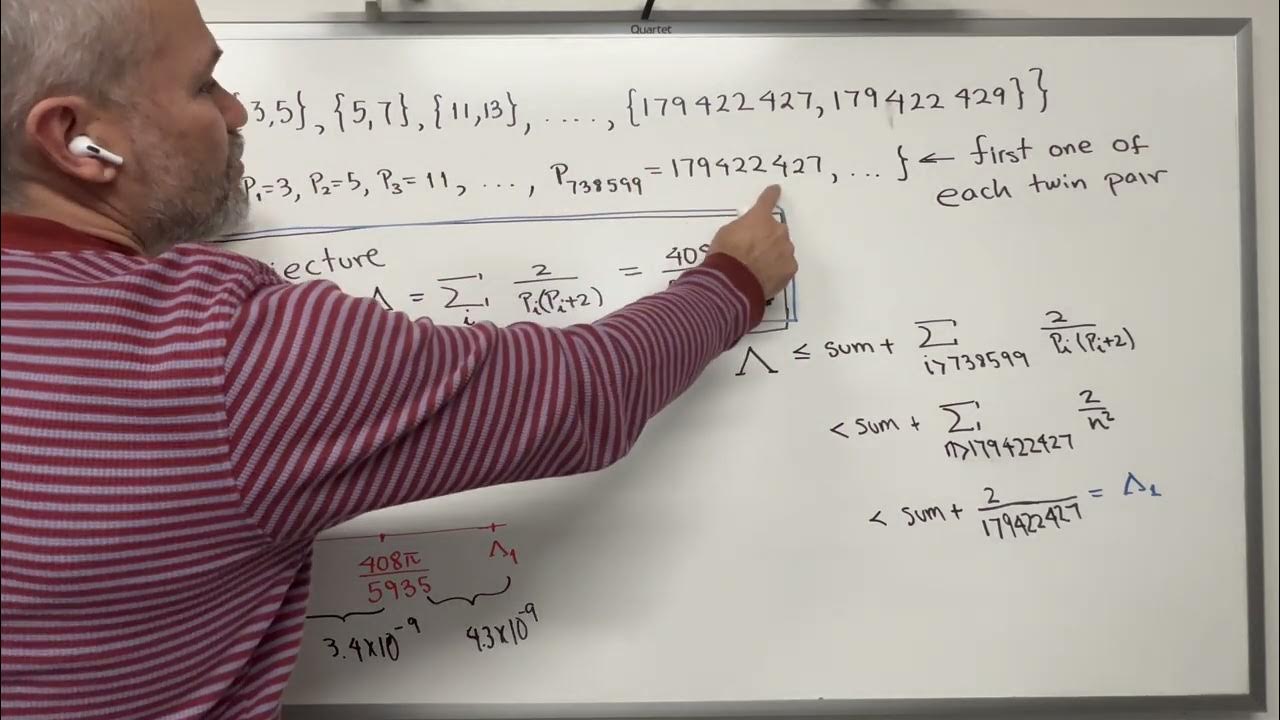 Quartet
3,5}, {5,7}, {11,13}, ...., {179 422 427, 179 422 429}}
P₁=3, P₂=5, P₃=11, ..., P₇₃₈₅₉₉=179422427, ... } ← first one of
each twin pair
jecture
Λ = Σ_i 2/(P_i(P_i+2)) = 40
Λ ≤ sum + Σ_{i>738599} 2/(P_i(P_i+2))
< sum + Σ_{n>179422427} 2/n²
< sum + 2/179422427 = Λ₁
408π/5935 Λ₁
3.4×10⁻⁹ 4.3×10⁻⁹